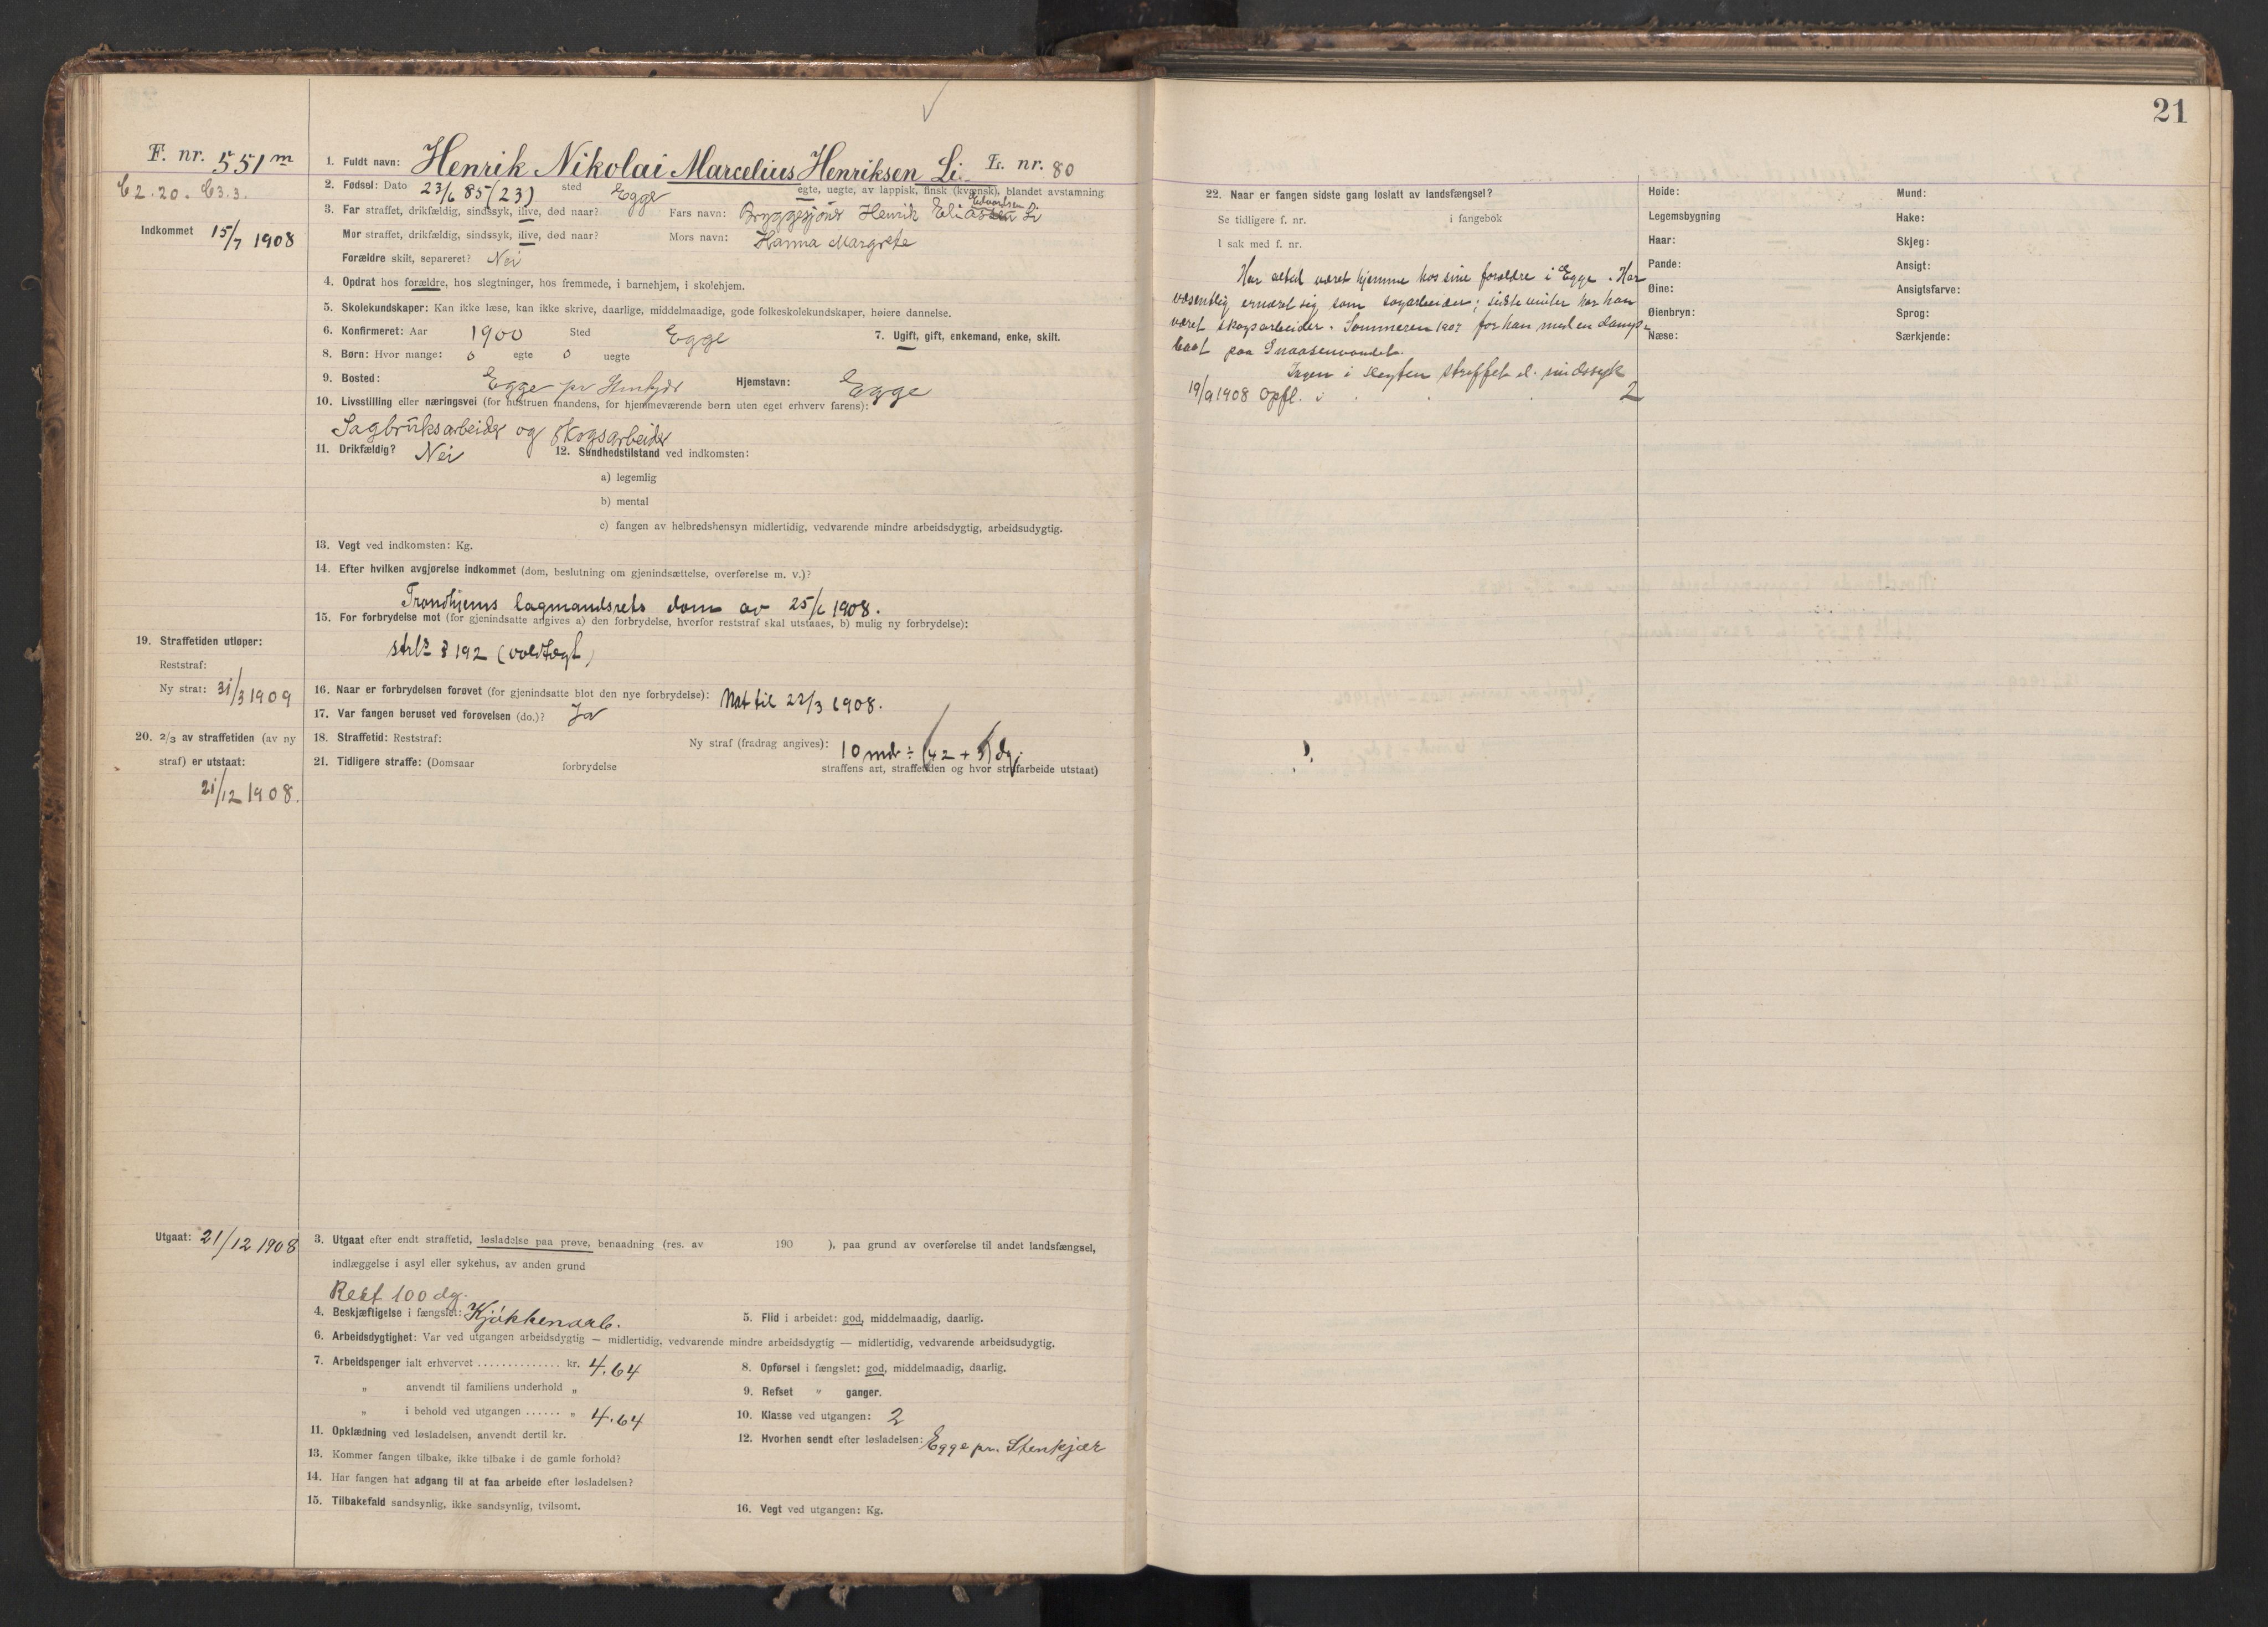 21
F. nr. 551 m
C2.20. C3.3.
Indkommet 15/7 1908
1. Fuldt navn: Henrik Nikolai Marcelius Henriksen Li. Fs. nr. 80
2. Fødsel: Dato 23/6 85 (23) sted Egge egte, uegte, av lappisk, finsk (kvænsk), blandet avstamning
3. Far straffet, drikfældig, sindssyk, ilive, død naar? Fars navn: Bryggesjouer Henrik Eliassen Edvardsen Li
Mor straffet, drikfældig, sindssyk, ilive, død naar? Mors navn: Hanna Margrete
Forældre skilt, separeret? Nei
4. Opdrat hos forældre, hos slegtninger, hos fremmede, i barnehjem, i skolehjem.
5. Skolekundskaper: Kan ikke læse, kan ikke skrive, daarlige, middelmaadige, gode folkeskolekundskaper, høiere dannelse.
6. Konfirmeret: Aar 1900 Sted Egge 7. Ugift, gift, enkemand, enke, skilt.
8. Børn: Hvor mange: 0 egte 0 uegte
9. Bosted: Egge pr Stenkjær Hjemstavn: Egge
10. Livsstilling eller næringsvei (for hustruen mandens, for hjemmeværende børn uten eget erhverv farens):
Sagbruksarbeider og skogsarbeider
11. Drikfældig? Nei 12. Sundhedstilstand ved indkomsten:
a) legemlig
b) mental
c) fangen av helbredshensyn midlertidig, vedvarende mindre arbeidsdygtig, arbeidsudygtig.
13. Vegt ved indkomsten: Kg.
14. Efter hvilken avgjørelse indkommet (dom, beslutning om gjenindsættelse, overførelse m. v.)?
Trondhjems lagmandsrets dom av 25/6 1908.
15. For forbrydelse mot (for gjenindsatte angives a) den forbrydelse, hvorfor reststraf skal utstaaes, b) mulig ny forbrydelse):
strl. § 192 (voldtægt)
19. Straffetiden utløper:
Reststraf:
Ny straf: 31/3 1909
16. Naar er forbrydelsen forøvet (for gjenindsatte blot den nye forbrydelse): Nat til 22/3 1908.
17. Var fangen beruset ved forøvelsen (do.)? Ja
20. 2/3 av straffetiden (av ny straf) er utstaat:
21/12 1908.
18. Straffetid: Reststraf: Ny straf (fradrag angives): 10 md ÷ (42 + 5) dg.
21. Tidligere straffe: (Domsaar forbrydelse straffens art, straffetiden og hvor strafarbeide utstaat)
Utgaat: 21/12 1908
3. Utgaat efter endt straffetid, løsladelse paa prøve, benaadning (res. av 190 ), paa grund av overførelse til andet landsfængsel,
indlæggelse i asyl eller sykehus, av anden grund
Rest 100 dg.
4. Beskjæftigelse i fængslet: Kjøkkenarb. 5. Flid i arbeidet: god, middelmaadig, daarlig.
6. Arbeidsdygtighet: Var ved utgangen arbeidsdygtig — midlertidig, vedvarende mindre arbeidsdygtig — midlertidig, vedvarende arbeidsudygtig.
7. Arbeidspenger ialt erhvervet .............. kr. 4.64 8. Opførsel i fængslet: god, middelmaadig, daarlig.
„ anvendt til familiens underhold „ 9. Refset „ ganger.
„ i behold ved utgangen ...... „ 4.64 10. Klasse ved utgangen: 2
11. Opklædning ved løsladelsen, anvendt dertil kr. 12. Hvorhen sendt efter løsladelsen: Egge pr. Stenkjær
13. Kommer fangen tilbake, ikke tilbake i de gamle forhold?
14. Har fangen hat adgang til at faa arbeide efter løsladelsen?
15. Tilbakefald sandsynlig, ikke sandsynlig, tvilsomt. 16. Vegt ved utgangen: Kg.
22. Naar er fangen sidste gang løslatt av landsfængsel?
Se tidligere f. nr. i fangebok
I sak med f. nr.
Har altid været hjemme hos sine forældre i Egge. Har
væsentlig ernæret sig som sagarbeider; sidste vinter har han
været skogsarbeider. Sommeren 1907 for han med en damp-
baat paa Snaasenvandet.
Ingen i slegten straffet el. sindssyk
19/9 1908 Opfl. i 2
Høide: Mund:
Legemsbygning Hake:
Haar: Skjeg:
Pande: Ansigt:
Øine: Ansigtsfarve:
Øienbryn: Sprog:
Næse: Særkjende: